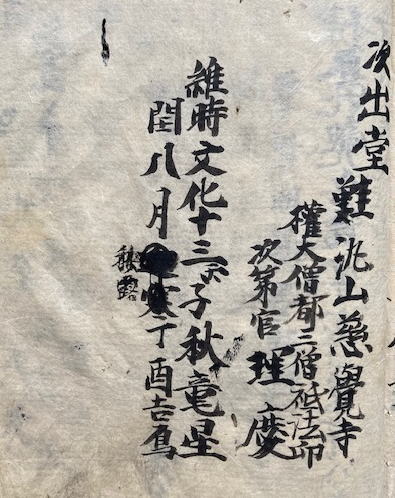 次出堂
難山慈覺寺
權大僧都三僧祗法印
次第官 理慶
維時文化十三丙子秋竜星
閏八月寒丁酉吉鳥
露